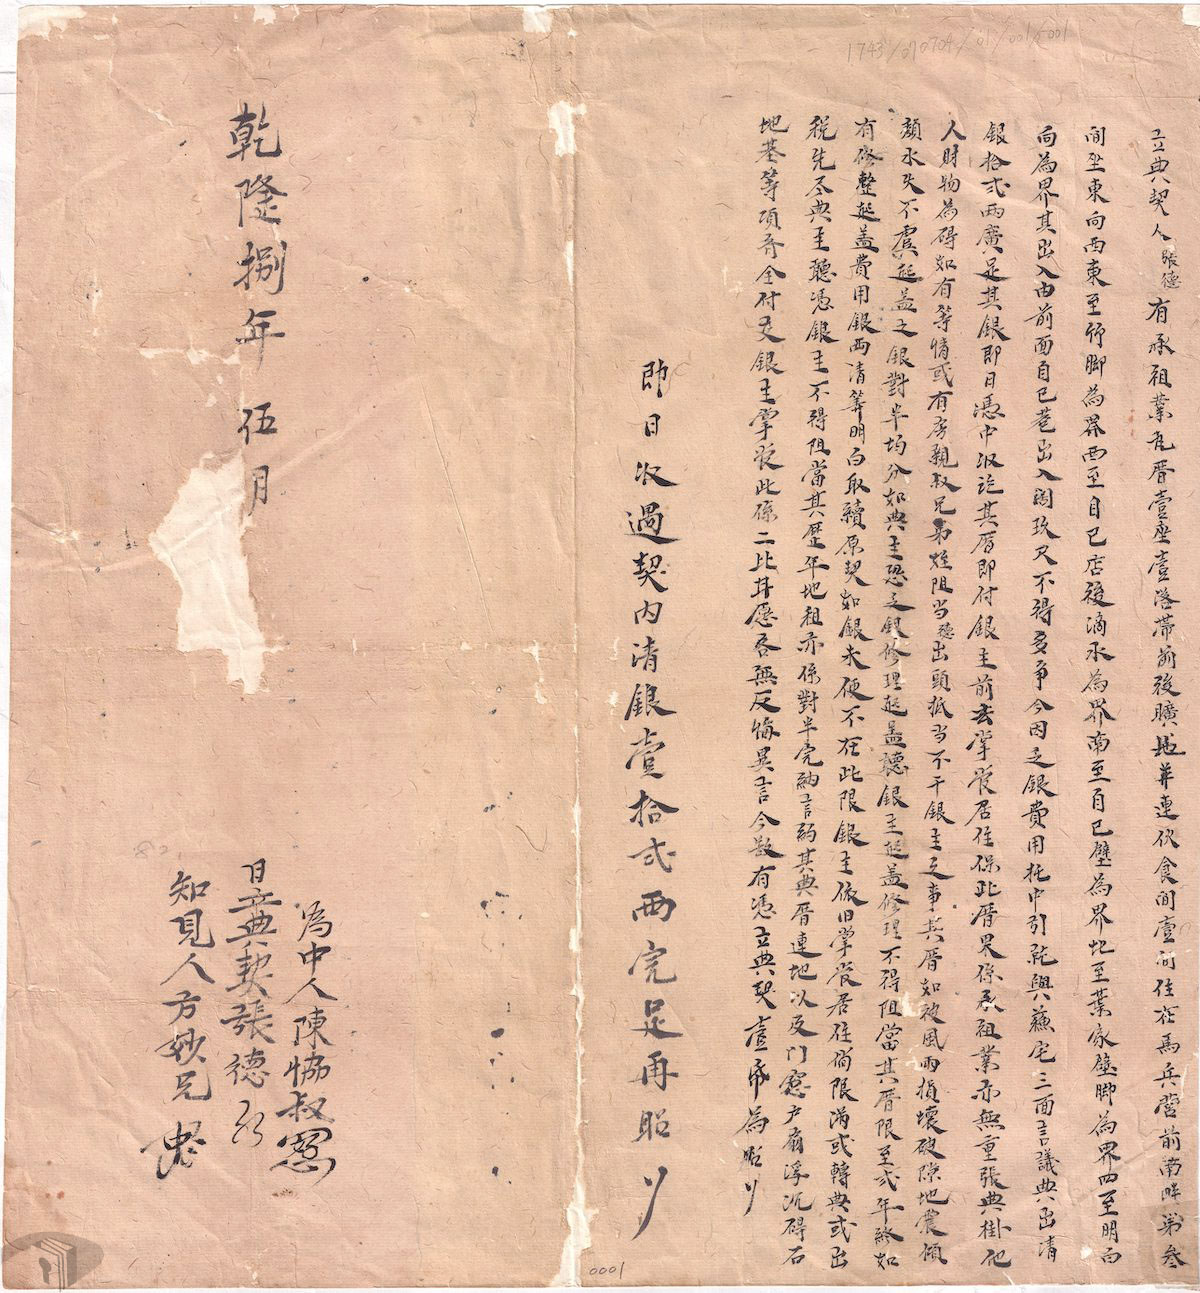 1743/070704/01/001/0001
立典契人張德有承祖業瓦厝壹座壹落帶前後曠地并連伙食間壹間住在馬兵營前南畔第叁
間坐東向西東至竹脚為界西至自己店後滴水為界南至自己壁為界北至葉家壁脚為界四至明白
向為界其出入由前面自己巷出入闊玖尺不得多爭今因乏銀費用托中引就與蘇宅三面言議典出清
銀拾弍兩廣足其銀即日憑中收訖其厝即付銀主前去掌管居住保此厝果係承祖業亦無重張典掛他
人財物為碍如有等情或有房親叔兄弟姪阻当德出頭抵当不干銀主之事其厝如被風雨損壞破隙地震傾
頹水火不虞起盖之銀對半均分如典主恐乏銀修理起盖聽銀主起盖修理不得阻當其厝限至弍年終如
有修整起盖費用銀両清筭明白取贖原契如銀未便不在此限銀主依旧掌管居住倘限滿或轉典或出
税先尽典主聽憑銀主不得阻當其歷年地租亦係對半完納言約其典厝連地以及门窓户扇浮沉磚石
地基等項齐全付交銀主掌管此係二比甘愿各無反悔異言今欲有憑立典契壹帋為照
即日收過契内清銀壹拾弍両完足再照
乾隆捌年伍月
為中人陳協叔
日立典契張德
知見人方妙兄
0001